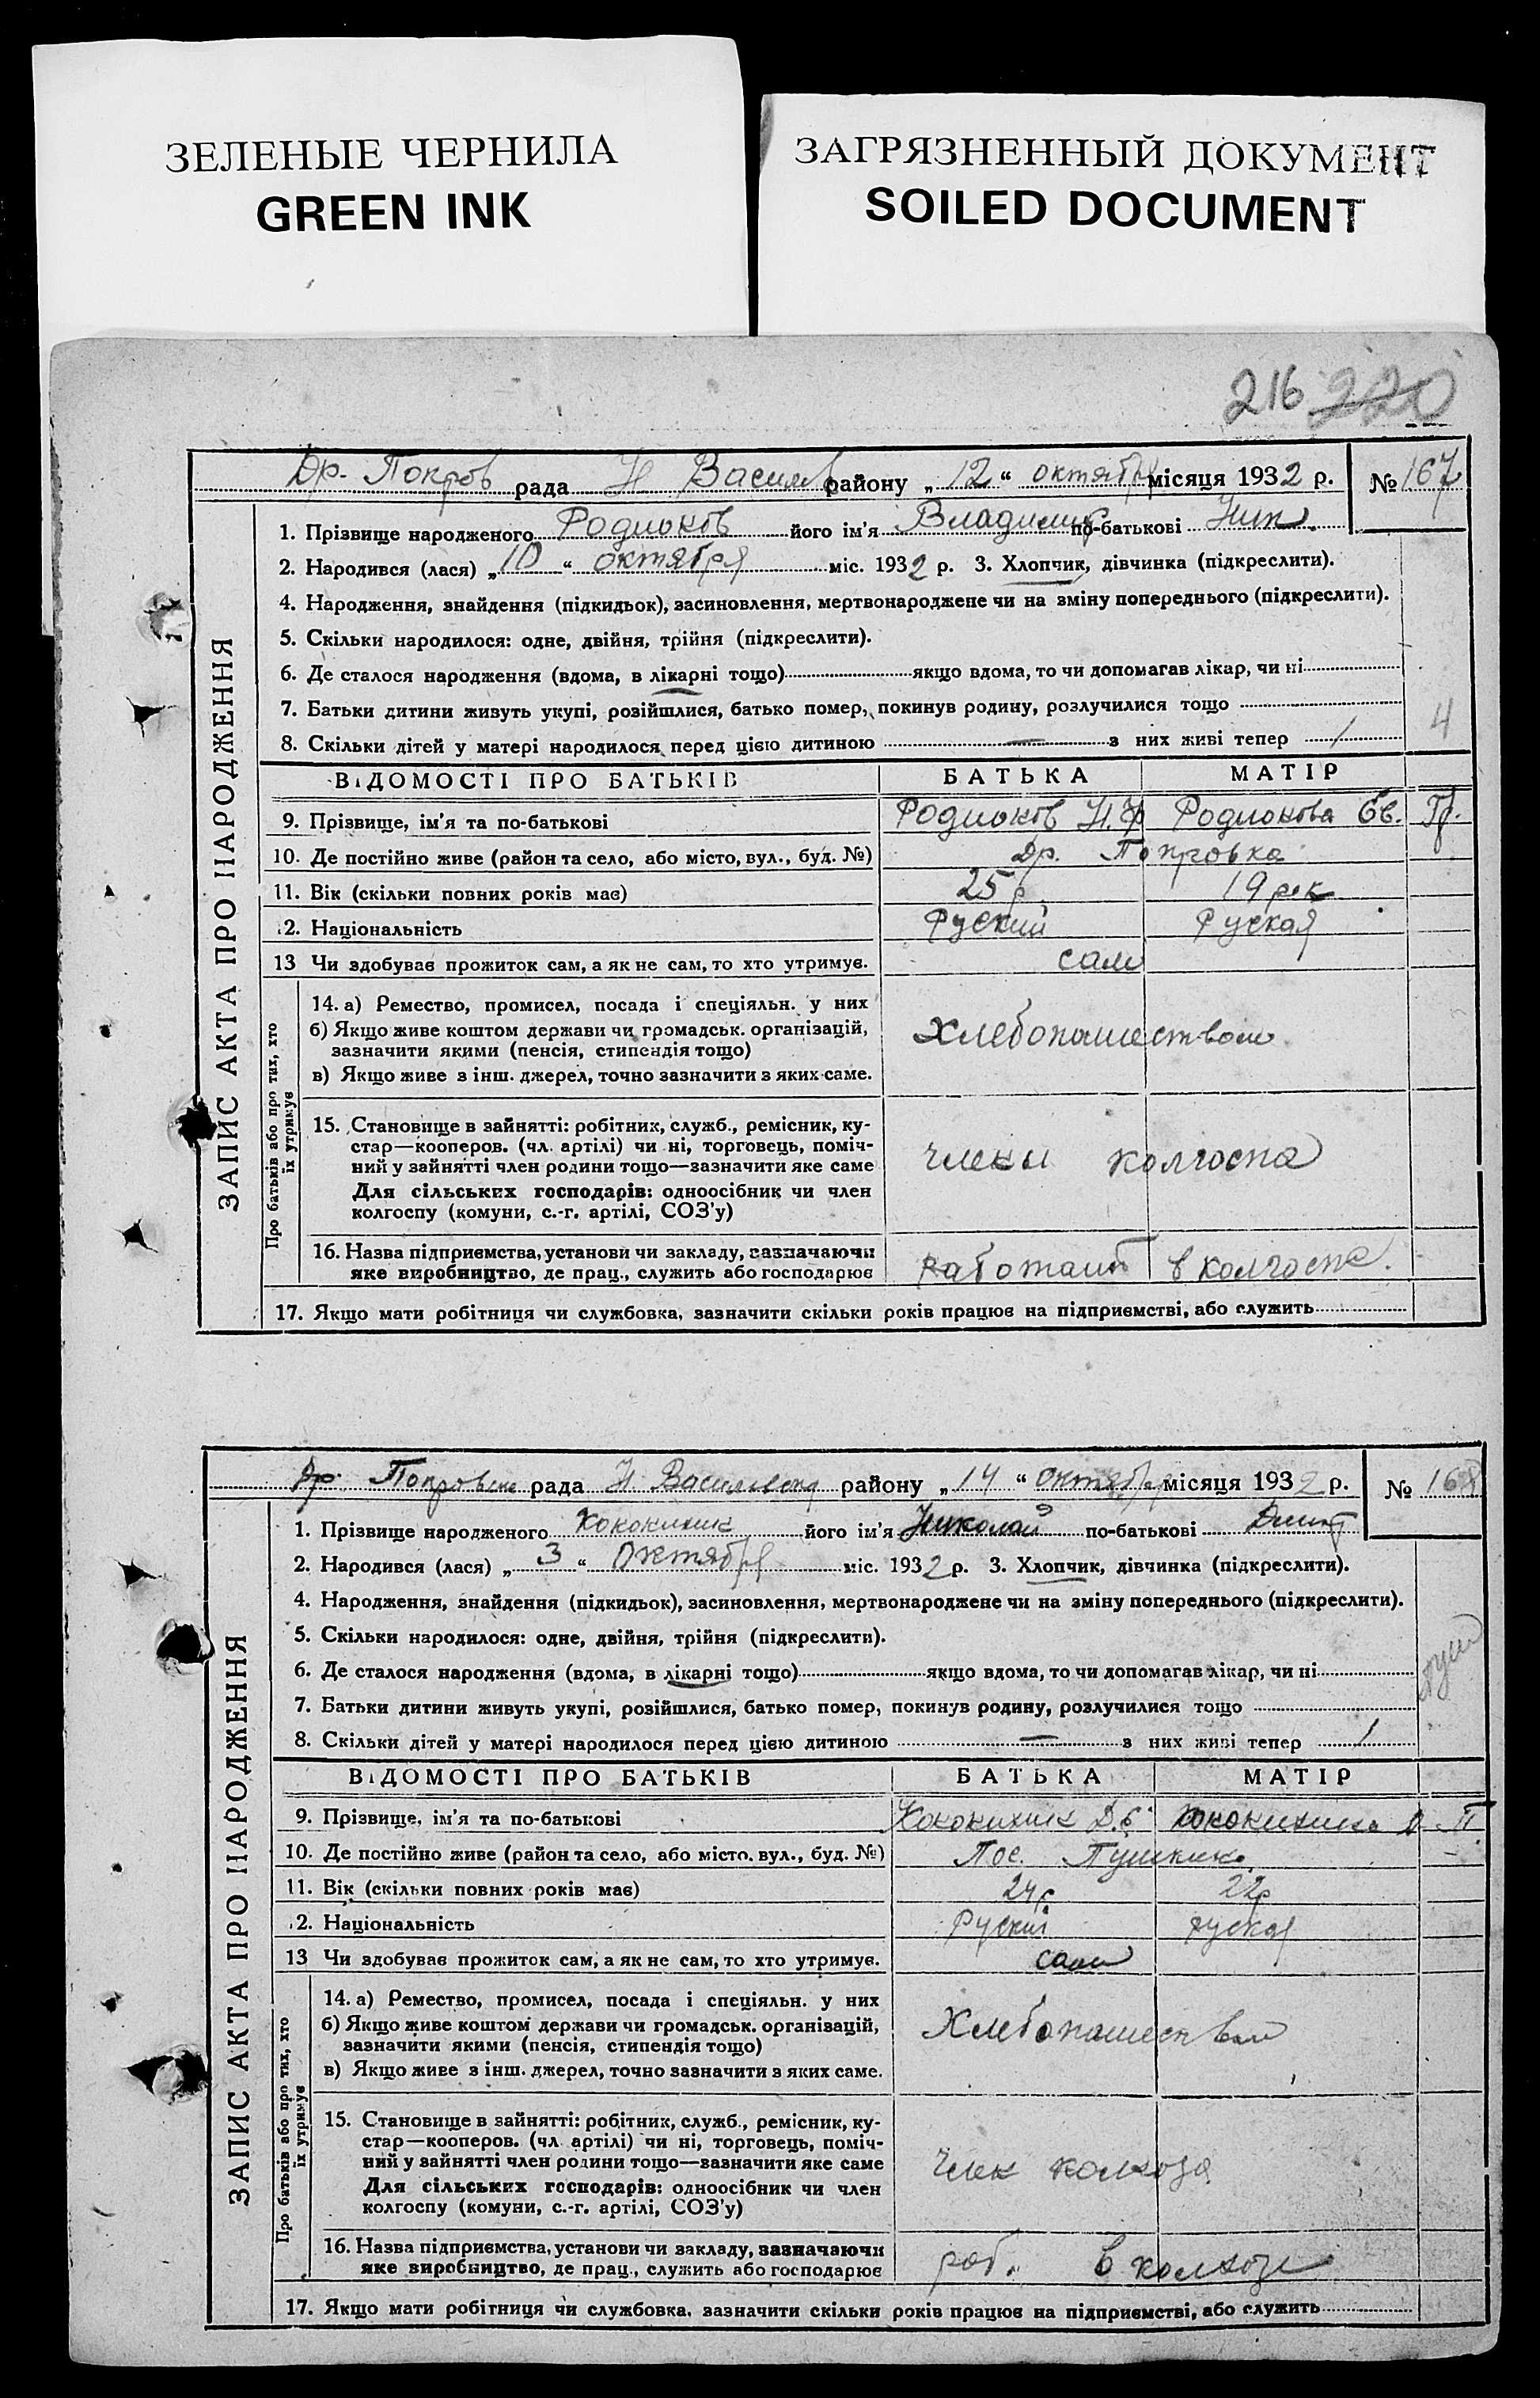 ЗЕЛЕНЫЕ ЧЕРНИЛА
GREEN INK
ЗАГРЯЗНЕННЫЙ ДОКУМЕНТ
SOILED DOCUMENT
216 220
Др. Покров рада Н Василев району „12“ октября місяця 1932 р. № 167
ЗАПИС АКТА ПРО НАРОДЖЕННЯ
1. Прізвище народженого Родионов його ім'я Владимир по-батькові Ник.
2. Народився (лася) „10“ октября міс. 1932 р. 3. Хлопчик, дівчинка (підкреслити).
4. Народження, знайдення (підкидьок), засиновлення, мертвонароджене чи на зміну попереднього (підкреслити).
5. Скільки народилося: одне, двійня, трійня (підкреслити).
6. Де сталося народження (вдома, в лікарні тощо) якщо вдома, то чи допомагав лікар, чи ні
7. Батьки дитини живуть укупі, розійшлися, батько помер, покинув родину, розлучилися тощо
8. Скільки дітей у матері народилося перед цією дитиною — з них живі тепер 1
4
ВІДОМОСТІ ПРО БАТЬКІВ БАТЬКА МАТІР
9. Прізвище, ім'я та по-батькові Родионов Н. Родионова Ев.
10. Де постійно живе (район та село, або місто, вул., буд. №) Др. Покровка
11. Вік (скільки повних років має) 25 р 19 рок
12. Національність Руский Руская
13 Чи здобував прожиток сам, а як не сам, то хто утримує. сам
Про батьків або про тих, хто їх утримує
14. а) Ремество, промисел, посада і спеціяльн. у них
б) Якщо живе коштом держави чи громадськ. організацій,
зазначити якими (пенсія, стипендія тощо) Хлебопашеством
в) Якщо живе з інш. джерел, точно зазначити з яких саме.
15. Становище в зайнятті: робітник, служб., ремісник, ку-
стар—кооперов. (чл. артілі) чи ні, торговець, поміч-
ний у зайнятті член родини тощо—зазначити яке саме члены колгоспа
Для сільських господарів: одноосібник чи член
колгоспу (комуни, с.-г. артілі, СОЗ'у)
16. Назва підприємства, установи чи закладу, зазначаючи
яке виробництво, де прац., служить або господарює работают в колгоспе.
17. Якщо мати робітниця чи службовка, зазначити скільки років працює на підприємстві, або служить
Др. Покровска рада Н Василевска району „14“ октября місяця 1932 р. № 168
ЗАПИС АКТА ПРО НАРОДЖЕННЯ
1. Прізвище народженого Кококихин його ім'я Николай по-батькові Дмит
2. Народився (лася) „3“ Октября міс. 1932 р. 3. Хлопчик, дівчинка (підкреслити).
4. Народження, знайдення (підкидьок), засиновлення, мертвонароджене чи на зміну попереднього (підкреслити).
5. Скільки народилося: одне, двійня, трійня (підкреслити).
6. Де сталося народження (вдома, в лікарні тощо) якщо вдома, то чи допомагав лікар, чи ні
7. Батьки дитини живуть укупі, розійшлися, батько помер, покинув родину, розлучилися тощо
8. Скільки дітей у матері народилося перед цією дитиною — з них живі тепер 1
ВІДОМОСТІ ПРО БАТЬКІВ БАТЬКА МАТІР
9. Прізвище, ім'я та по-батькові
10. Де постійно живе (район та село, або місто. вул., буд. №) Пос. Пушкино
11. Вік (скільки повних років має) 24р 22р
12. Національність Руский руская
13 Чи здобував прожиток сам, а як не сам, то хто утримує. сам
Про батьків або про тих, хто їх утримує
14. а) Ремество, промисел, посада і спеціяльн. у них
б) Якщо живе коштом держави чи громадськ. організацій,
зазначити якими (пенсія, стипендія тощо) Хлебопашеством
в) Якщо живе з інш. джерел, точно зазначити з яких саме.
15. Становище в зайнятті: робітник, служб., ремісник, ку-
стар—кооперов. (чл. артілі) чи ні, торговець, поміч-
ний у зайнятті член родини тощо—зазначити яке саме член колхоза
Для сільських господарів: одноосібник чи член
колгоспу (комуни, с.-г. артілі, СОЗ'у)
16. Назва підприємства, установи чи закладу, зазначаючи
яке виробництво, де прац., служить або господарює раб. в колхозе
17. Якщо мати робітниця чи службовка, зазначити скільки років працює на підприємстві, або служить